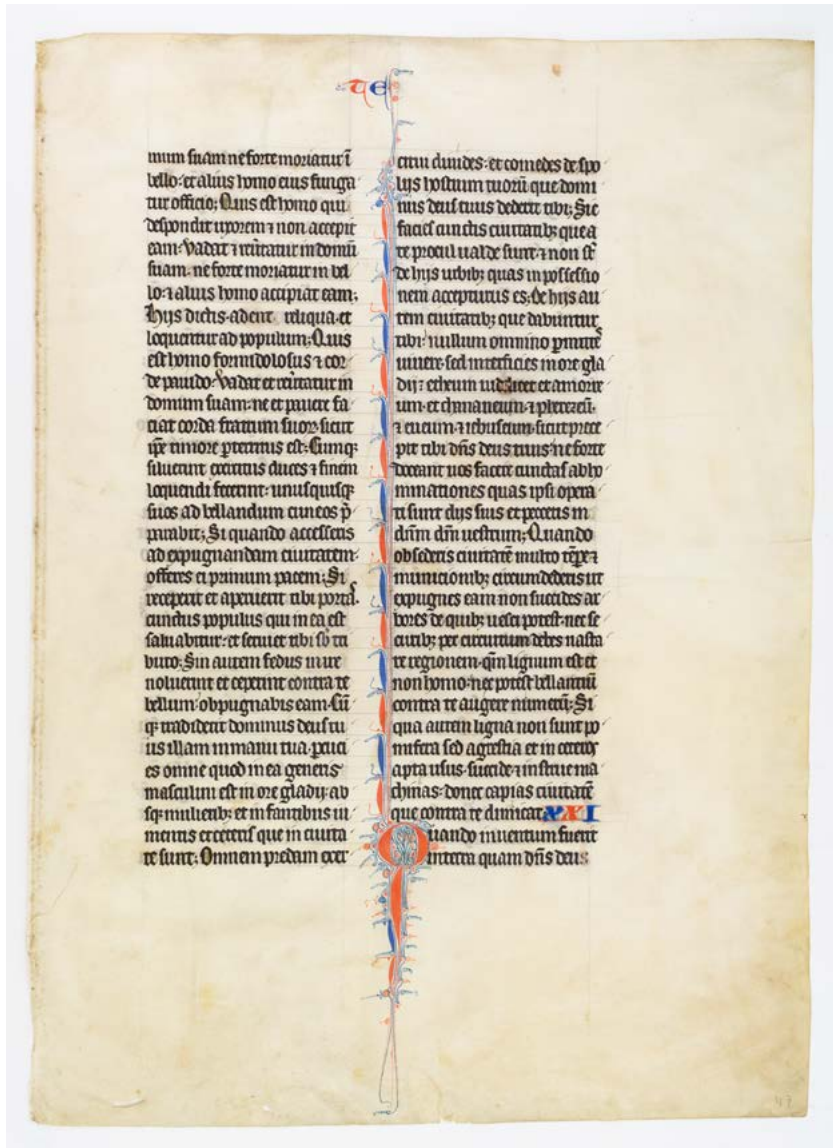 TE
mum suam ne forte moriatur ī
bello: et alius homo eius funga
tur officio; Quis est homo qui
despondit uxorem ⁊ non accepit
eam· Vadat ⁊ reūtatur in domū
suam· ne forte moriatur in bel
lo· ⁊ alius homo accipiat eam;
Hijs dictis· adent reliqua· et
loquentur ad populum; Quis
est homo formidolosus ⁊ cor
de pauido· Vadat et reūtatur in
domum suam· ne et pauere fa
ciat corda fratrum suor· sicut
ip̄e timore ꝑterritus est· Cumqꝫ
siluerint exercitus duces ⁊ finem
loquendi fecerint· unusquisqꝫ
suos ad bellandum cuneos p̄
parabit; Si quando accesseris
ad expugnandam ciuitatem·
offeres ei primum pacem; Si
receperit et aperuerit tibi portas·
cunctus populus qui in ea est
saluabitur· et seruiet tibi sb̄ tri
buto; Sin autem fedus inire
noluerint et ceperint contra te
bellum· obpugnabis eam· Cū
qꝫ tradiderit dominus deus tu
us illam in manu tua· ꝑcuci
es omne quod in ea generis
masculini est in ore gladij· ab
sqꝫ mulieribꝫ et infantibus iu
mentis et ceteris que in ciuita
te sunt; Omnem predam exer
citui diuides· et comedes de spo
lijs hostium tuorū que domi
nus deus tuus dederit tibi; Sic
facies cunctis ciuitatibꝫ que a
te procul ualde sunt· ⁊ non sūt
de hijs urbibꝫ quas in possessio
nem accepturus es; De hijs au
tem ciuitatibꝫ que dabuntur
tibi· nullum omnino ꝑmittes
uiuere· sed interficies in ore gla
dij: etheum uidelicet et amorre
um· et chananeum· ⁊ pherezeū·
⁊ eueum· ⁊ iebuseum· sicut prece
pit tibi dn̄s deus tuus· ne forte
doceant uos facere cunctas abho
minationes quas ipsi opera
ti sunt dijs suis et peccetis in
dn̄m dm̄ uestrum; Quando
obsederis ciuitatē multo tēpꝛe ⁊
municionibꝫ circumdederis ut
expugnes eam non succides ar
bores de quibꝫ uesci potest· nec se
curibꝫ per circuitum debes uasta
re regionem· qm̄ lignum est et
non homo· nec potest bellantiū
contra te augere numerū; Si
qua autem ligna non sunt po
mifera sed agrestia et in ceteros
apta usus· succide ⁊ instrue ma
chinas· donec capias ciuitatē
que contra te dimicat XXI
Quando inuentum fuerit
in terra quam dn̄s deus
47